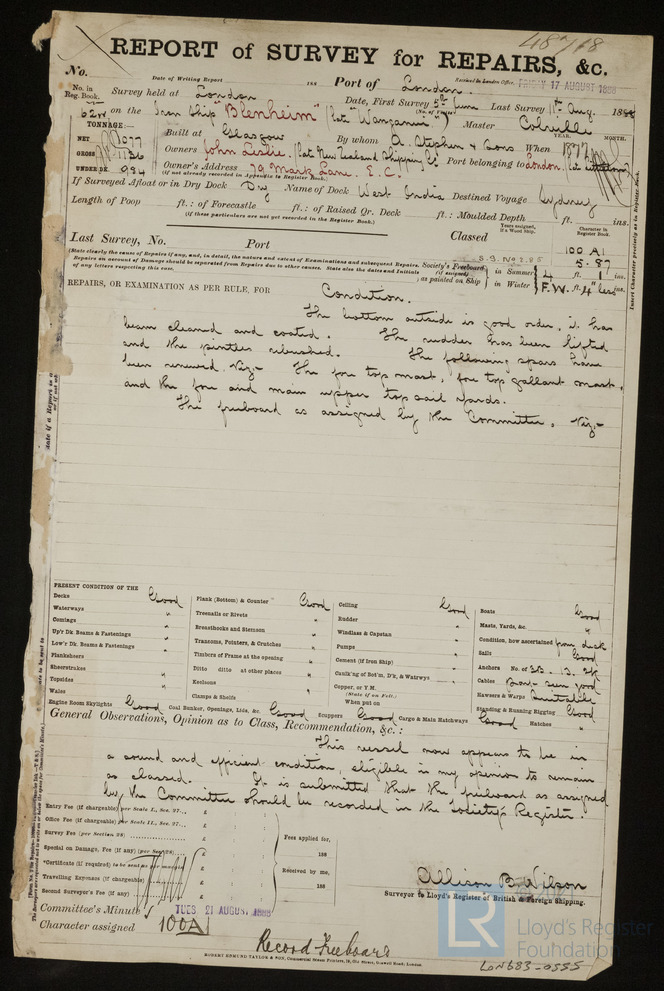 48a/18
REPORT of SURVEY for REPAIRS, &c.
No.
Date of Writing Report 188 Port of London. Received in London Office, FRIDAY 17 AUGUST 1888
No. in Reg. Book. Survey held at London Date, First Survey 5th June Last Survey 11th Aug. 1888
62 on the Iron Ship "Blenheim" (late "Wanganui") Master Colville
TONNAGE:— Built at Glasgow By whom A. Stephen & Sons When 1877 YEAR. MONTH.
NET 1077
GROSS 1136 Owners John Leslie. (late New Zealand Shipping Co Port belonging to London.
UNDER DK. 984 Owner's Address 79 Mark Lane. E.C.
(If not already recorded in Appendix to Register Book.)
If Surveyed Afloat or in Dry Dock Dry Name of Dock West India Destined Voyage Sydney
Length of Poop ft.: of Forecastle ft.: of Raised Qr. Deck ft.: Moulded Depth ft. ins.
(if these particulars are not yet recorded in the Register Book.)
Last Survey, No. Port Classed
Years assigned, if a Wood Ship. Character in Register Book.
100 A1
S.S. No 2.85 5.87
(State clearly the cause of Repairs if any, and, in detail, the nature and extent of Examinations and subsequent Repairs.
Repairs on account of Damage should be separated from Repairs due to other causes. State also the dates and Initials of any letters respecting this case.
Society's Freeboard (if assigned) as printed on Ship in Summer 4 ft. 1 ins.
in Winter F.W. 4" less ins.
REPAIRS, OR EXAMINATION AS PER RULE, FOR Condition.
The bottom outside is good order, it has
been cleaned and coated. The rudder has been lifted
and the pintles rebushed. The following spars have
been renewed. Viz- The fore top mast, fore top gallant mast,
and the fore and main upper top sail yards.
The freeboard as assigned by the Committee. Viz,-
PRESENT CONDITION OF THE
Decks Good
Waterways "
Comings "
Up'r Dk. Beams & Fastenings "
Low'r Dk. Beams & Fastenings "
Planksheers
Sheerstrakes "
Topsides "
Wales
Engine Room Skylights Good
Plank (Bottom) & Counter Good
Treenails or Rivets "
Breasthooks and Stemson "
Transoms, Pointers, & Crutches "
Timbers of Frame at the opening "
Ditto ditto at other places "
Keelsons "
Clamps & Shelfs "
Coal Bunker, Openings, Lids, &c. Good
Ceiling Good
Rudder "
Windlass & Capstan "
Pumps "
Cement (if Iron Ship) "
Caulk'ng of Bot'm, D'k, & Watrwys "
Copper, or Y.M. (State if on Felt.)
When put on
Scuppers Good Cargo & Main Hatchways Good
Boats Good
Masts, Yards, &c. "
Condition, how ascertained from deck
Sails Good
Anchors No. of 3B. 1S. 2K
Cables seen good
Hawsers & Warps Suitable
Standing & Running Rigging Good
Hatches "
General Observations, Opinion as to Class, Recommendation, &c.:
This vessel now appears to be in
a sound and efficient condition, eligible in my opinion to remain
as classed. It is submitted that the freeboard as assigned
by the Committee should be recorded in the Society's Register.
Entry Fee (if chargeable) per Scale I., Sec. 97... £
Office Fee (if chargeable) per Scale II., Sec. 97... £
Survey Fee (per Section 28) £
Special on Damage, Fee (if any) (per Sec. 28) £
*Certificate (if required) to be sent as per margin £
Travelling Expenses (if chargeable) £
Second Surveyor's Fee (if any) £
Fees applied for, 188
Received by me, 188
Allison B. Wilson
Surveyor to Lloyd's Register of British & Foreign Shipping.
Committee's Minute TUES 21 AUGUST 1888
Character assigned 100A1
Record Freeboard
ROBERT EDMUND TAYLOR & SON, Commercial Steam Printers, 19, Old Street, Goswell Road, London
LR Lloyd's Register Foundation
LON683-0555